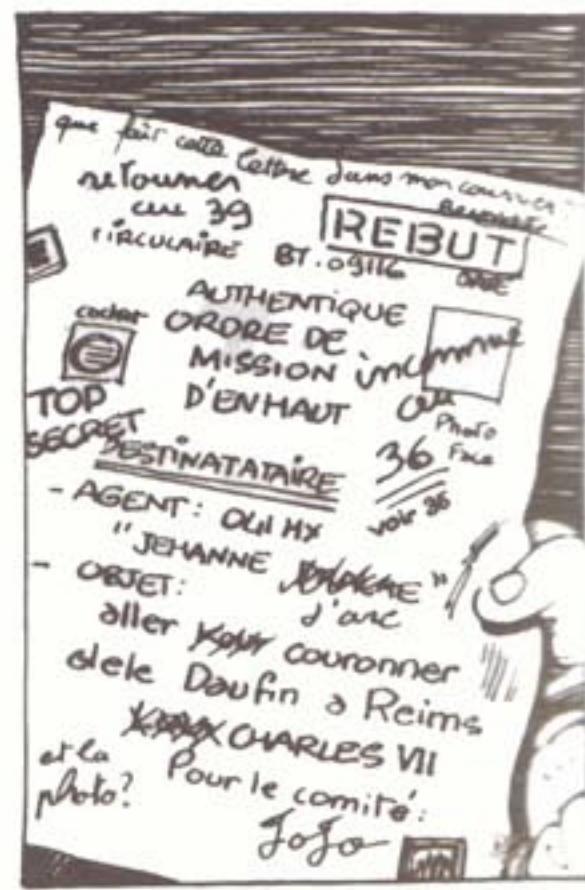 que fait cette lettre dans mon courrier
retourner
au 39
CIRCULAIRE BT.09116
REBUT
AUTHENTIQUE
ORDRE DE
MISSION
D'ENHAUT
cachet
inconnue
au
36
Photo
Face
voir 36
TOP
SECRET
DESTINATATAIRE
- AGENT:
"JEHANNE "
d'arc
- OBJET:
aller couronner
dele Daufin a Reims
CHARLES VII
et la
photo?
Pour le comité:
JoJo